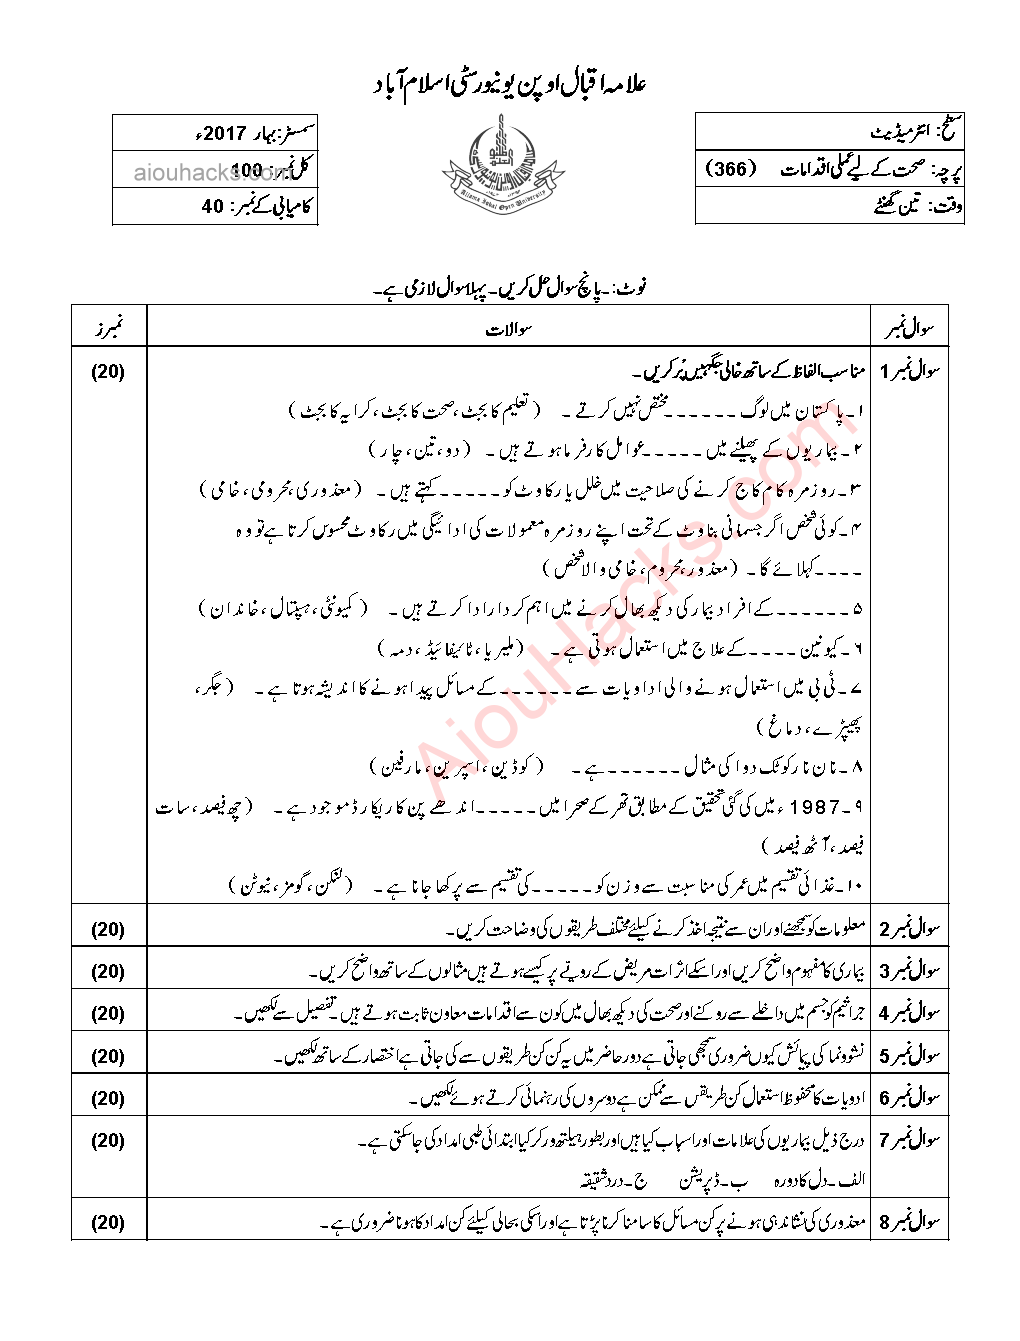 علامہ اقبال اوپن یونیورسٹی اسلام آباد
سطح: انٹرمیڈیٹ
پرچہ: صحت کے لیے عملی اقدامات (366)
وقت: تین گھنٹے
سمسٹر: بہار 2017ء
کل نمبر: 100
کامیابی کے نمبر: 40
aiouhacks.com
Allama Iqbal Open University
نوٹ:۔ پانچ سوال حل کریں۔ پہلا سوال لازمی ہے۔
سوال نمبر سوالات نمبرز
سوال نمبر 1 مناسب الفاظ کے ساتھ خالی جگہیں پُر کریں۔ (20)
۱۔ پاکستان میں لوگ ------ مختص نہیں کرتے۔ (تعلیم کا بجٹ، صحت کا بجٹ، کرایہ کا بجٹ)
۲۔ بیماریوں کے پھیلنے میں ----- عوامل کارفرما ہوتے ہیں۔ (دو، تین، چار)
۳۔ روزمرہ کام کاج کرنے کی صلاحیت میں خلل یا رکاوٹ کو ----- کہتے ہیں۔ (معذوری، محرومی، خامی)
۴۔ کوئی شخص اگر جسمانی بناوٹ کے تحت اپنے روزمرہ معمولات کی ادائیگی میں رکاوٹ محسوس کرتا ہے تو وہ
---- کہلائے گا۔ (معذور، محروم، خامی والا شخص)
۵۔ ------ کے افراد بیمار کی دیکھ بھال کرنے میں اہم کردار ادا کرتے ہیں۔ (کمیونٹی، ہسپتال، خاندان)
۶۔ کیونین ---- کے علاج میں استعمال ہوتی ہے۔ (ملیریا، ٹائیفائیڈ، دمہ)
۷۔ ٹی بی میں استعمال ہونے والی ادویات سے ------ کے مسائل پیدا ہونے کا اندیشہ ہوتا ہے۔ (جگر،
پھیپڑے، دماغ)
۸۔ نان نارکوٹک دوا کی مثال ------ ہے۔ (کوڈین، اسپرین، مارفین)
۹۔ 1987ء میں کی گئی تحقیق کے مطابق تھر کے صحرا میں ----- اندھے پن کا ریکارڈ موجود ہے۔ (چھ فیصد، سات
فیصد، آٹھ فیصد)
۱۰۔ غذائی تقسیم میں عمر کی مناسبت سے وزن کو ----- کی تقسیم سے پرکھا جاتا ہے۔ (لنکن، گومز، نیوٹن)
سوال نمبر 2 معلومات کو سمجھنے اور ان سے نتیجہ اخذ کرنے کیلئے مختلف طریقوں کی وضاحت کریں۔ (20)
سوال نمبر 3 بیماری کا مفہوم واضح کریں اور اسکے اثرات مریض کے رویے پر کیسے ہوتے ہیں مثالوں کے ساتھ واضح کریں۔ (20)
سوال نمبر 4 جراثیم کو جسم میں داخلے سے روکنے اور صحت کی دیکھ بھال میں کون سے اقدامات معاون ثابت ہوتے ہیں۔ تفصیل سے لکھیں۔ (20)
سوال نمبر 5 نشوونما کی پیمائش کیوں ضروری سمجھی جاتی ہے دور حاضر میں یہ کن کن طریقوں سے کی جاتی ہے اختصار کے ساتھ لکھیں۔ (20)
سوال نمبر 6 ادویات کا محفوظ استعمال کن طریقں سے ممکن ہے دوسروں کی رہنمائی کرتے ہوئے لکھیں۔ (20)
سوال نمبر 7 درج ذیل بیماریوں کی علامات اور اسباب کیا ہیں اور بطور ہیلتھ ورکر کیا ابتدائی طبی امداد کی جاسکتی ہے۔ (20)
الف۔ دل کا دورہ ب۔ ڈپریشن ج۔ درد شقیقہ
سوال نمبر 8 معذوری کی نشاندہی ہونے پر کن مسائل کا سامنا کرنا پڑتا ہے اور اسکی بحالی کیلئے کن امداد کا ہونا ضروری ہے۔ (20)
AiouHacks.com